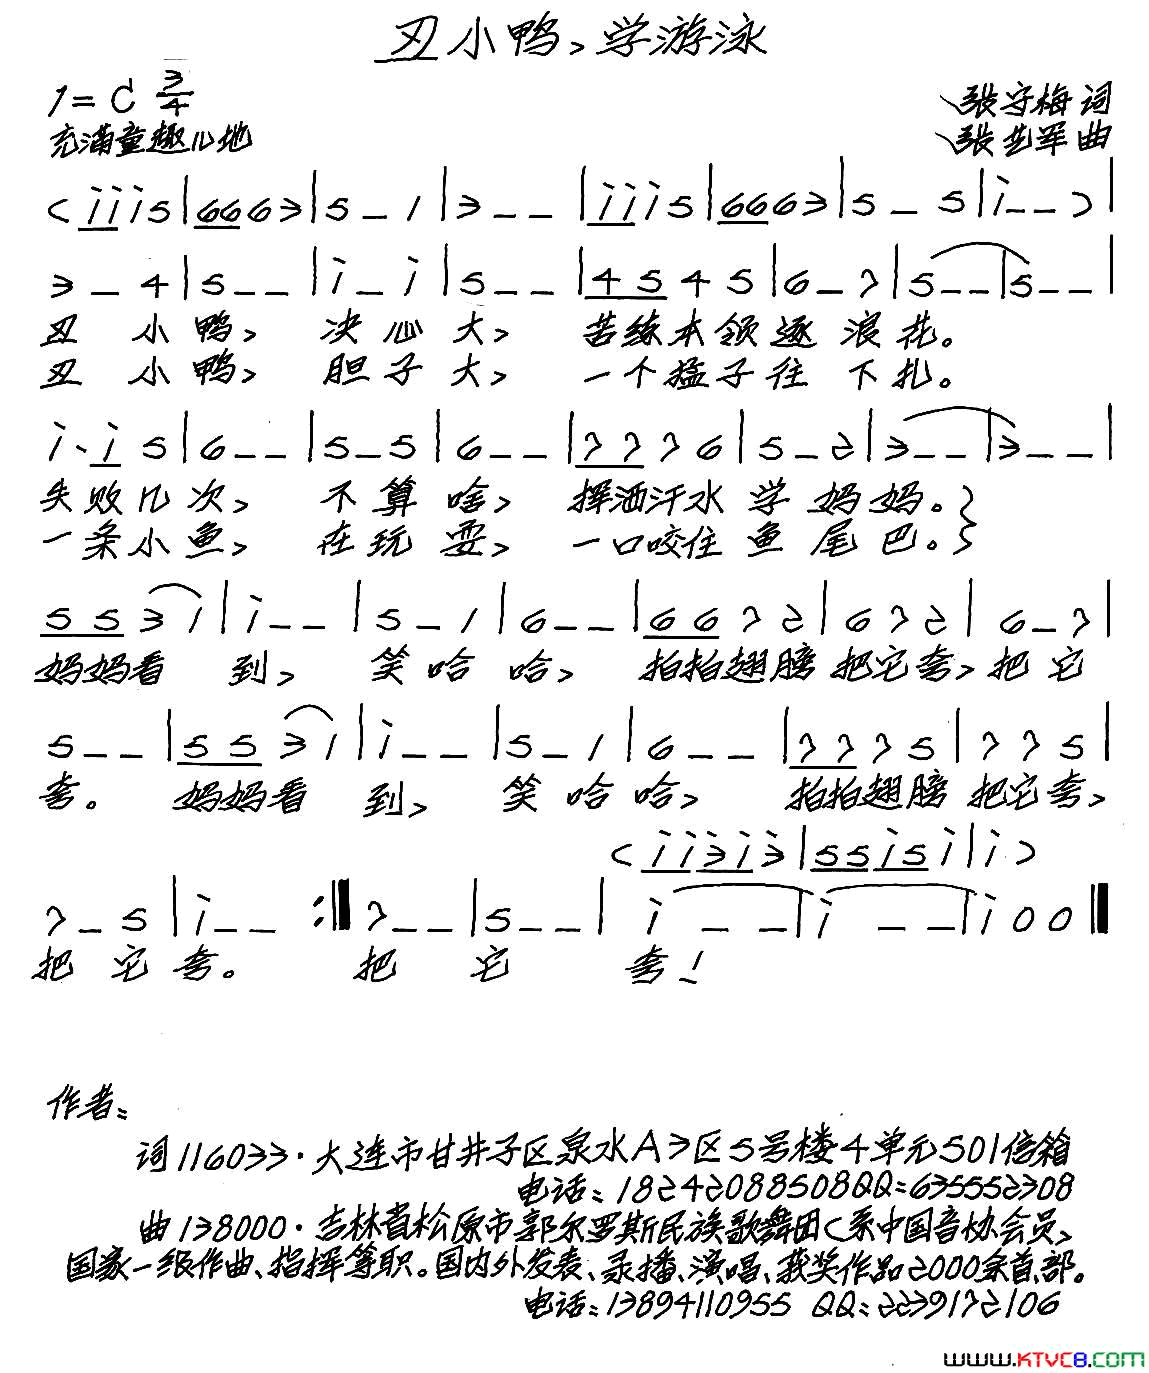 丑小鸭,学游泳
1=C 3/4
张守梅 词
充满童趣儿地
张艺军 曲
( i i i 5 | 6 6 6 3 | 5 – 1 | 3 – – | i i i 5 | 6 6 6 3 | 5 – 5 | i – – ) |
3 – 4 | 5 – – | i – i | 5 – – | 4 5 4 5 | 6 – 7 | 5 – – | 5 – – |
丑 小 鸭, 决 心 大, 苦练本领逐 浪 花。
丑 小 鸭, 胆 子 大, 一个猛子往 下 扎。
i· i 5 | 6 – – | 5 – 5 | 6 – – | 7 7 7 6 | 5 – 2 | 3 – – | 3 – – |
失败几次, 不 算 啥, 挥洒汗水 学 妈 妈。}
一条小鱼, 在 玩 耍, 一口咬住 鱼 尾 巴。}
5 5 3 1 | i – – | 5 – 1 | 6 – – | 6 6 7 2 | 6 7 2 | 6 – 7 |
妈妈看 到, 笑 哈 哈, 拍拍翅膀 把它夸, 把 它
5 – – | 5 5 3 1 | i – – | 5 – 1 | 6 – – | 7 7 7 5 | 7 7 5 |
夸。 妈妈看 到, 笑 哈 哈, 拍拍翅膀 把它夸,
( i i 3 i 3 | 5 5 i 5 i | i )
7 – 5 | i – – :‖ 7 – – | 5 – – | i – – | i – – | i 0 0 ‖
把 它 夸。 把 它 夸!
作者:
词116033·大连市甘井子区泉水A3区5号楼4单元501信箱
电话:18242088508QQ:635552308
曲138000·吉林省松原市郭尔罗斯民族歌舞团(系中国音协会员,
国家一级作曲、指挥等职。国内外发表、录播、演唱、获奖作品2000余首、部。
电话:13894110955 QQ:2239172106
www.KTVC8.COM